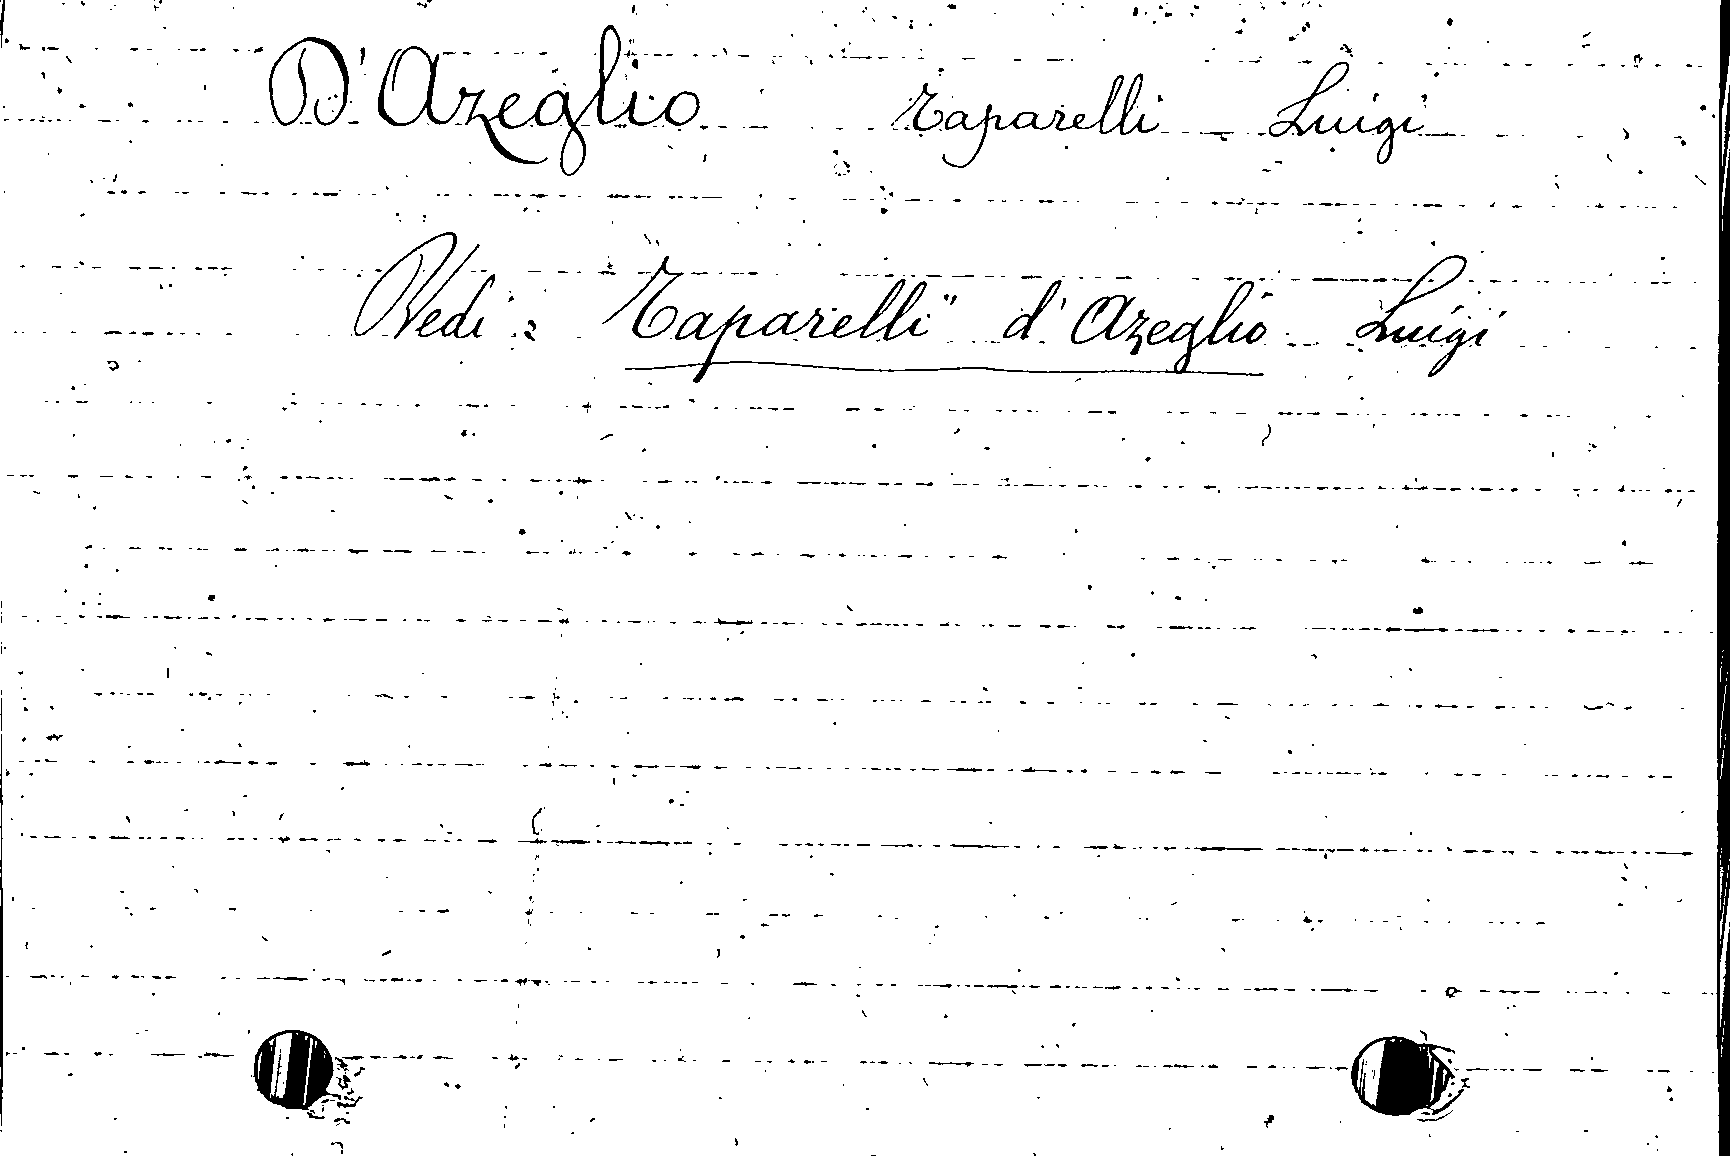 D'Azeglio Taparelli Luigi
Vedi: Taparelli" d'Azeglio Luigi